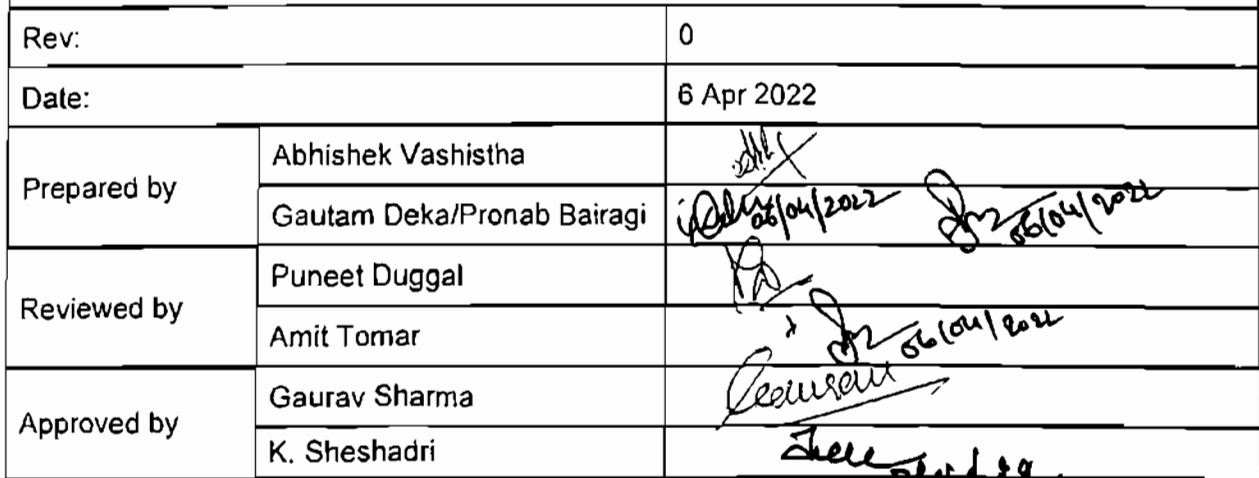 Rev: 0
Date: 6 Apr 2022
Prepared by
Abhishek Vashistha
Gautam Deka/Pronab Bairagi 06/04/2022 06/04/2022
Reviewed by
Puneet Duggal
Amit Tomar 06/04/2022
Approved by
Gaurav Sharma
K. Sheshadri